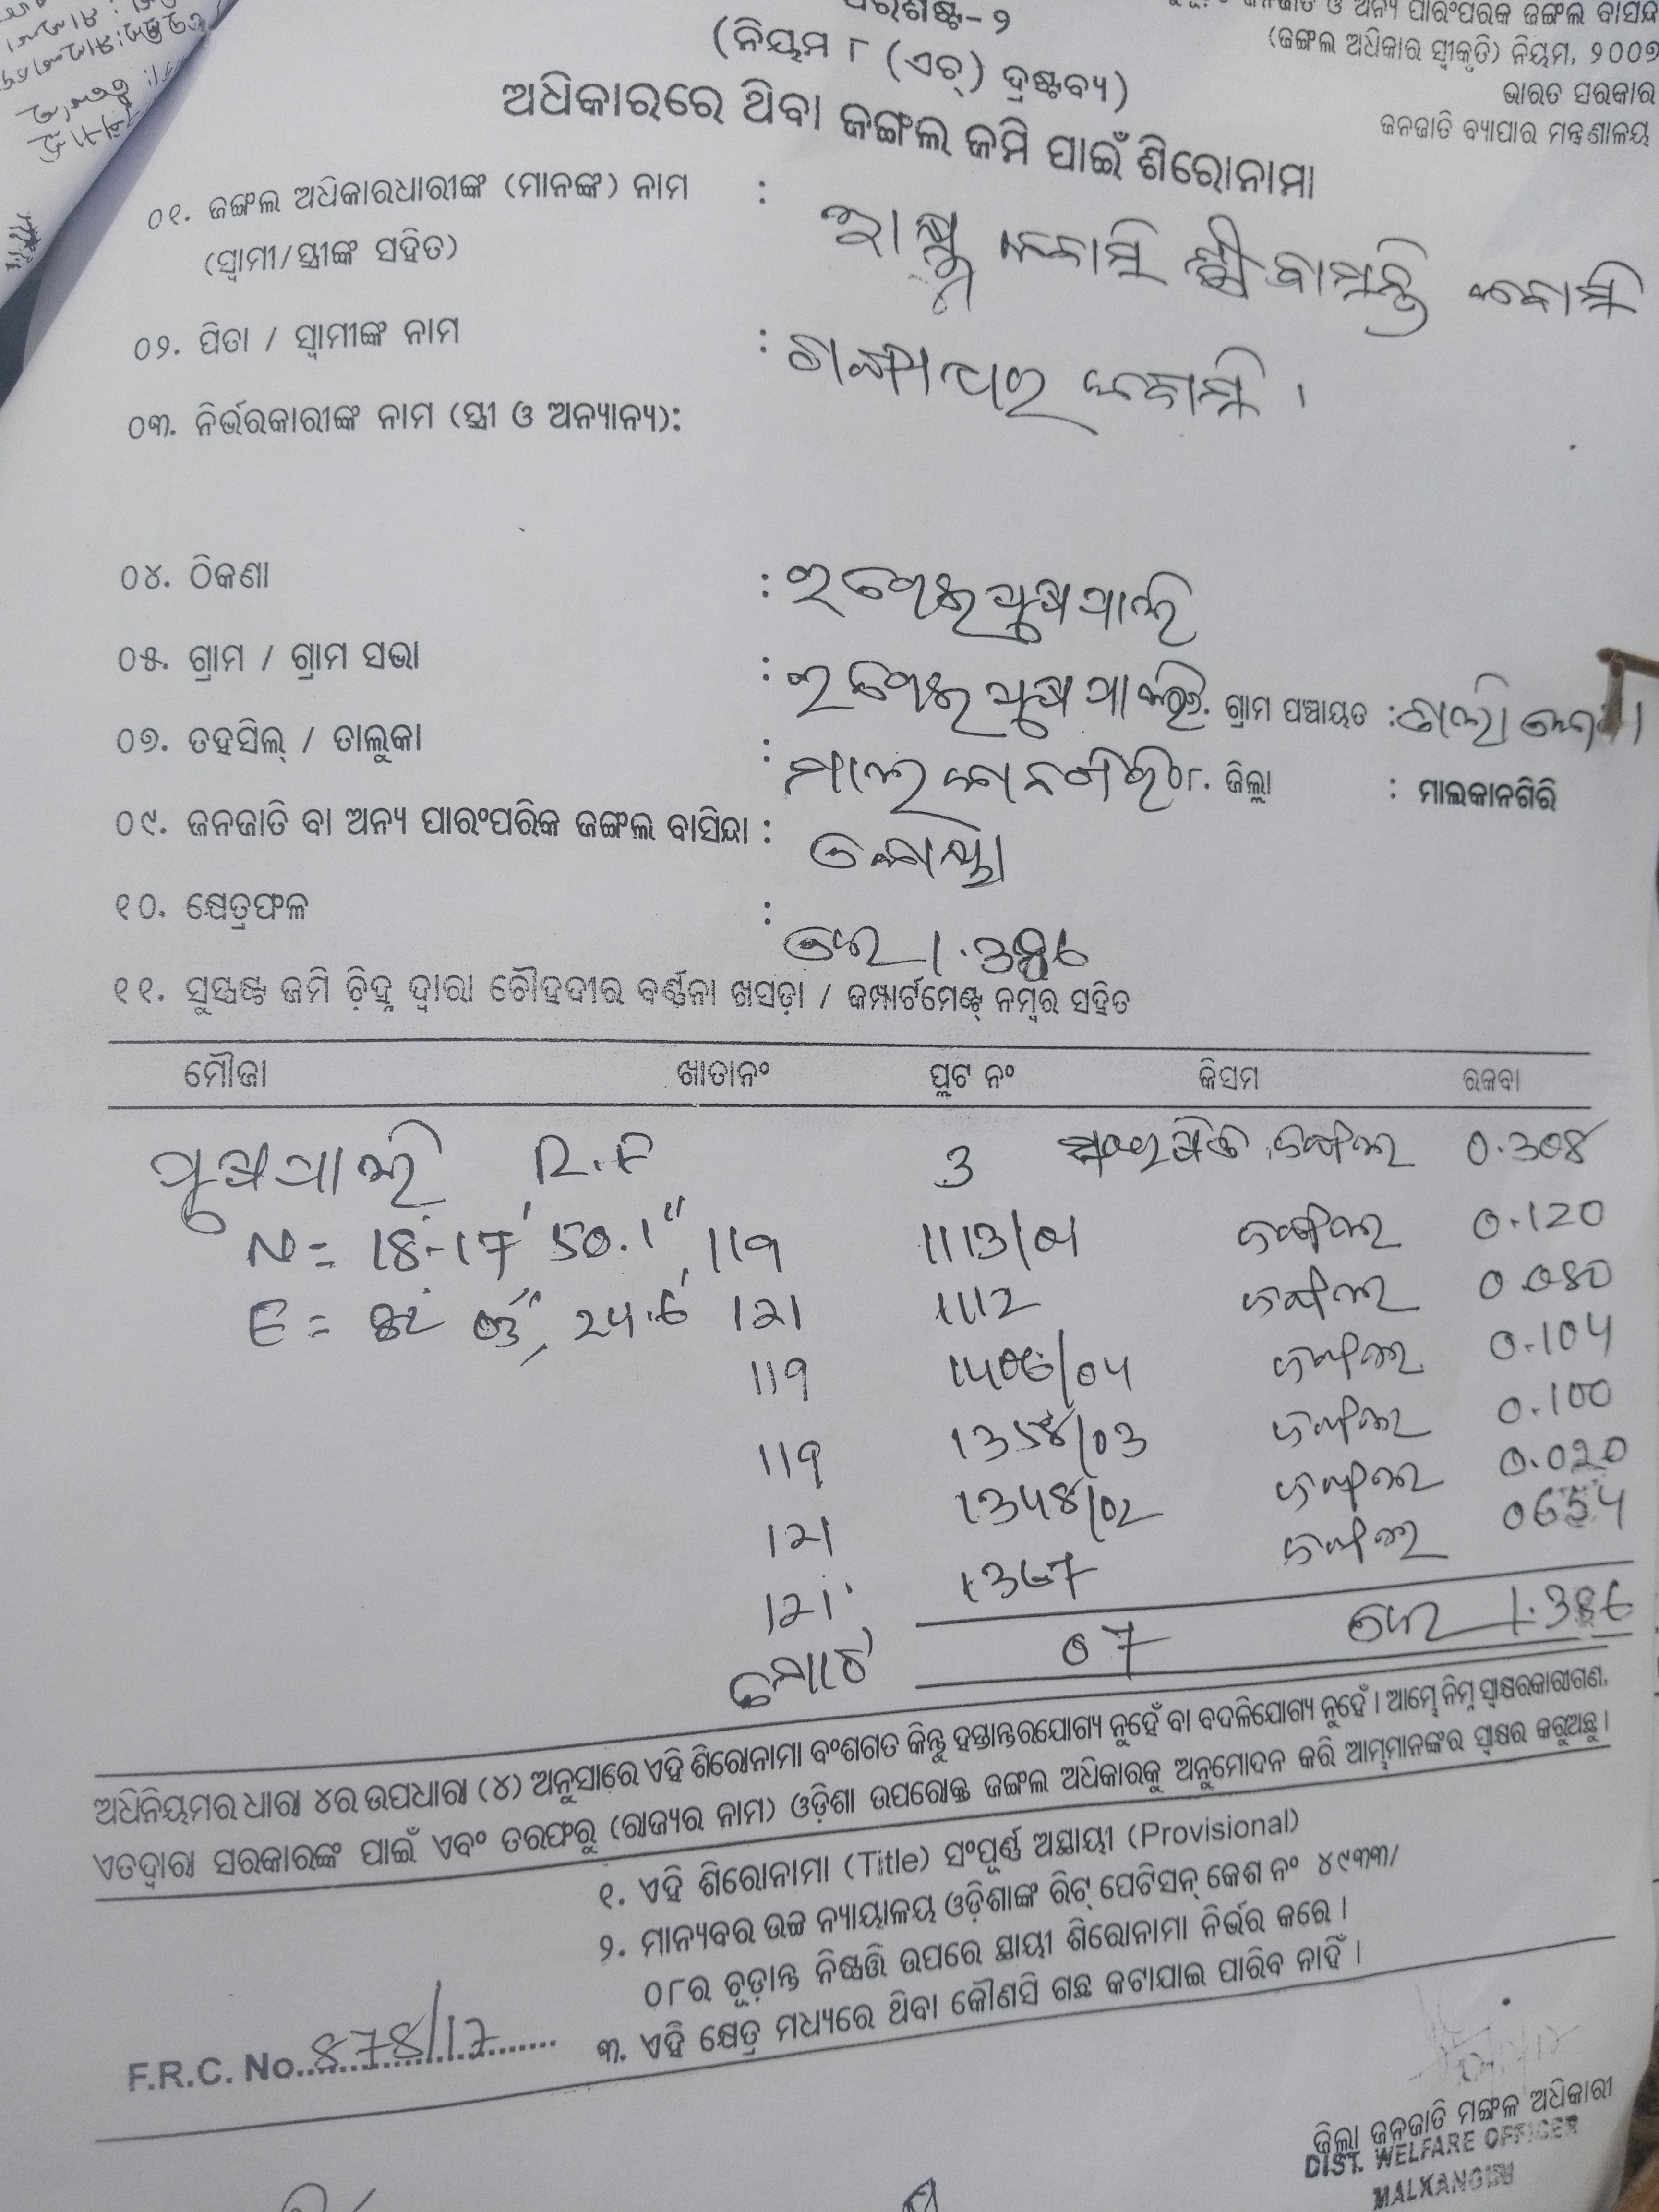 ପରିଶିଷ୍ଟ-୨
(ନିୟମ ୮ (ଏଚ୍) ଦ୍ରଷ୍ଟବ୍ୟ)
ଜନଜାତି ଓ ଅନ୍ୟ ପାରଂପରିକ ଜଙ୍ଗଲ ବାସିନ୍ଦା
(ଜଙ୍ଗଲ ଅଧିକାର ସ୍ୱୀକୃତି) ନିୟମ, ୨୦୦୭
ଭାରତ ସରକାର
ଜନଜାତି ବ୍ୟାପାର ମନ୍ତ୍ରଣାଳୟ
ଅଧିକାରରେ ଥିବା ଜଙ୍ଗଲ ଜମି ପାଇଁ ଶିରୋନାମା
୦୧. ଜଙ୍ଗଲ ଅଧିକାରଧାରୀଙ୍କ (ମାନଙ୍କ) ନାମ :
(ସ୍ୱାମୀ/ସ୍ତ୍ରୀଙ୍କ ସହିତ)
୦୨. ପିତା / ସ୍ୱାମୀଙ୍କ ନାମ :
୦୩. ନିର୍ଭରକାରୀଙ୍କ ନାମ (ସ୍ତ୍ରୀ ଓ ଅନ୍ୟାନ୍ୟ):
୦୪. ଠିକଣା :
୦୫. ଗ୍ରାମ / ଗ୍ରାମ ସଭା : ଗ୍ରାମ ପଞ୍ଚାୟତ :
୦୭. ତହସିଲ୍ / ତାଲୁକା : ମାଲକାନଗିରି ୦୮. ଜିଲ୍ଲା : ମାଲକାନଗିରି
୦୯. ଜନଜାତି ବା ଅନ୍ୟ ପାରଂପରିକ ଜଙ୍ଗଲ ବାସିନ୍ଦା : କୋୟା
୧୦. କ୍ଷେତ୍ରଫଳ : ହେ 1.386
୧୧. ସୁସ୍ପଷ୍ଟ ଜମି ଚିହ୍ନ ଦ୍ୱାରା ଚୌହଦୀର ବର୍ଣ୍ଣନା ଖସଡ଼ା / କମ୍ପାର୍ଟମେଣ୍ଟ୍ ନମ୍ବର ସହିତ
ମୌଜା ଖାତାନଂ ପ୍ଲଟ ନଂ କିସମ ରକବା
R.F 3 ସଂରକ୍ଷିତ ଜଙ୍ଗଲ 0.308
N = 18-17' 50.1", 119 1113/01 ଜଙ୍ଗଲ 0.120
E = 82 03", 24.6' 121 1112 ଜଙ୍ଗଲ 0.080
119 1406/04 ଜଙ୍ଗଲ 0.104
119 1358/03 ଜଙ୍ଗଲ 0.100
121 1348/02 ଜଙ୍ଗଲ 0.020
121 1367 ଜଙ୍ଗଲ 0654
ମୋଟ 07 ହେ 1.386
ଅଧିନିୟମର ଧାରା ୪ର ଉପଧାରା (୪) ଅନୁସାରେ ଏହି ଶିରୋନାମା ବଂଶଗତ କିନ୍ତୁ ହସ୍ତାନ୍ତରଯୋଗ୍ୟ ନୁହେଁ ବା ବଦଳିଯୋଗ୍ୟ ନୁହେଁ । ଆମ୍ଭେ ନିମ୍ନ ସ୍ୱାକ୍ଷରକାରୀଗଣ,
ଏତଦ୍ୱାରା ସରକାରଙ୍କ ପାଇଁ ଏବଂ ତରଫରୁ (ରାଜ୍ୟର ନାମ) ଓଡ଼ିଶା ଉପରୋକ୍ତ ଜଙ୍ଗଲ ଅଧିକାରକୁ ଅନୁମୋଦନ କରି ଆମ୍ଭମାନଙ୍କର ସ୍ୱାକ୍ଷର କରୁଅଛୁ ।
୧. ଏହି ଶିରୋନାମା (Title) ସଂପୂର୍ଣ୍ଣ ଅସ୍ଥାୟୀ (Provisional)
୨. ମାନ୍ୟବର ଉଚ୍ଚ ନ୍ୟାୟାଳୟ ଓଡ଼ିଶାଙ୍କ ରିଟ୍ ପେଟିସନ୍ କେଶ ନଂ ୪୯୩୩/
୦୮ର ଚୂଡ଼ାନ୍ତ ନିଷ୍ପତ୍ତି ଉପରେ ସ୍ଥାୟୀ ଶିରୋନାମା ନିର୍ଭର କରେ ।
୩. ଏହି କ୍ଷେତ୍ର ମଧ୍ୟରେ ଥିବା କୌଣସି ଗଛ କଟାଯାଇ ପାରିବ ନାହିଁ ।
F.R.C. No. 878/17
ଜିଲ୍ଲା ଜନଜାତି ମଙ୍ଗଳ ଅଧିକାରୀ
DIST. WELFARE OFFICER
MALKANGIRI